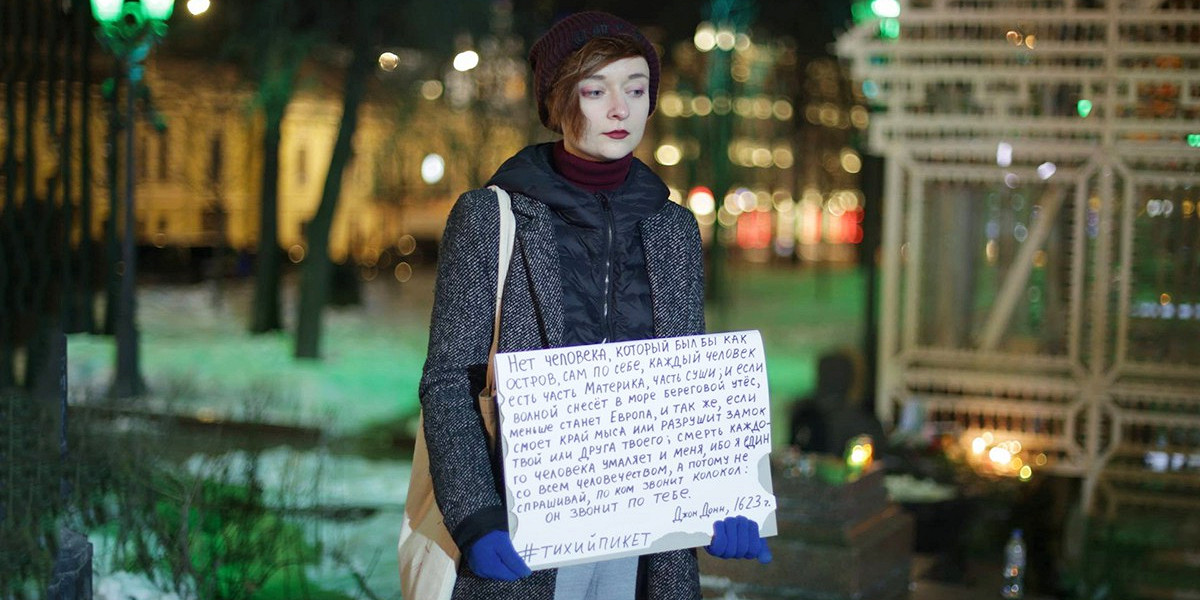 Нет человека, который был бы как
остров, сам по себе, каждый человек
есть часть Материка, часть суши; и если
волной снесёт в море береговой утёс,
меньше станет Европа, и так же, если
смоет край мыса или разрушит замок
твой или друга твоего; смерть каждо-
го человека умаляет и меня, ибо я един
со всем человечеством, а потому не
спрашивай, по ком звонит колокол:
он звонит по тебе.
Джон Донн, 1623 г.
#ТИХИЙПИКЕТ